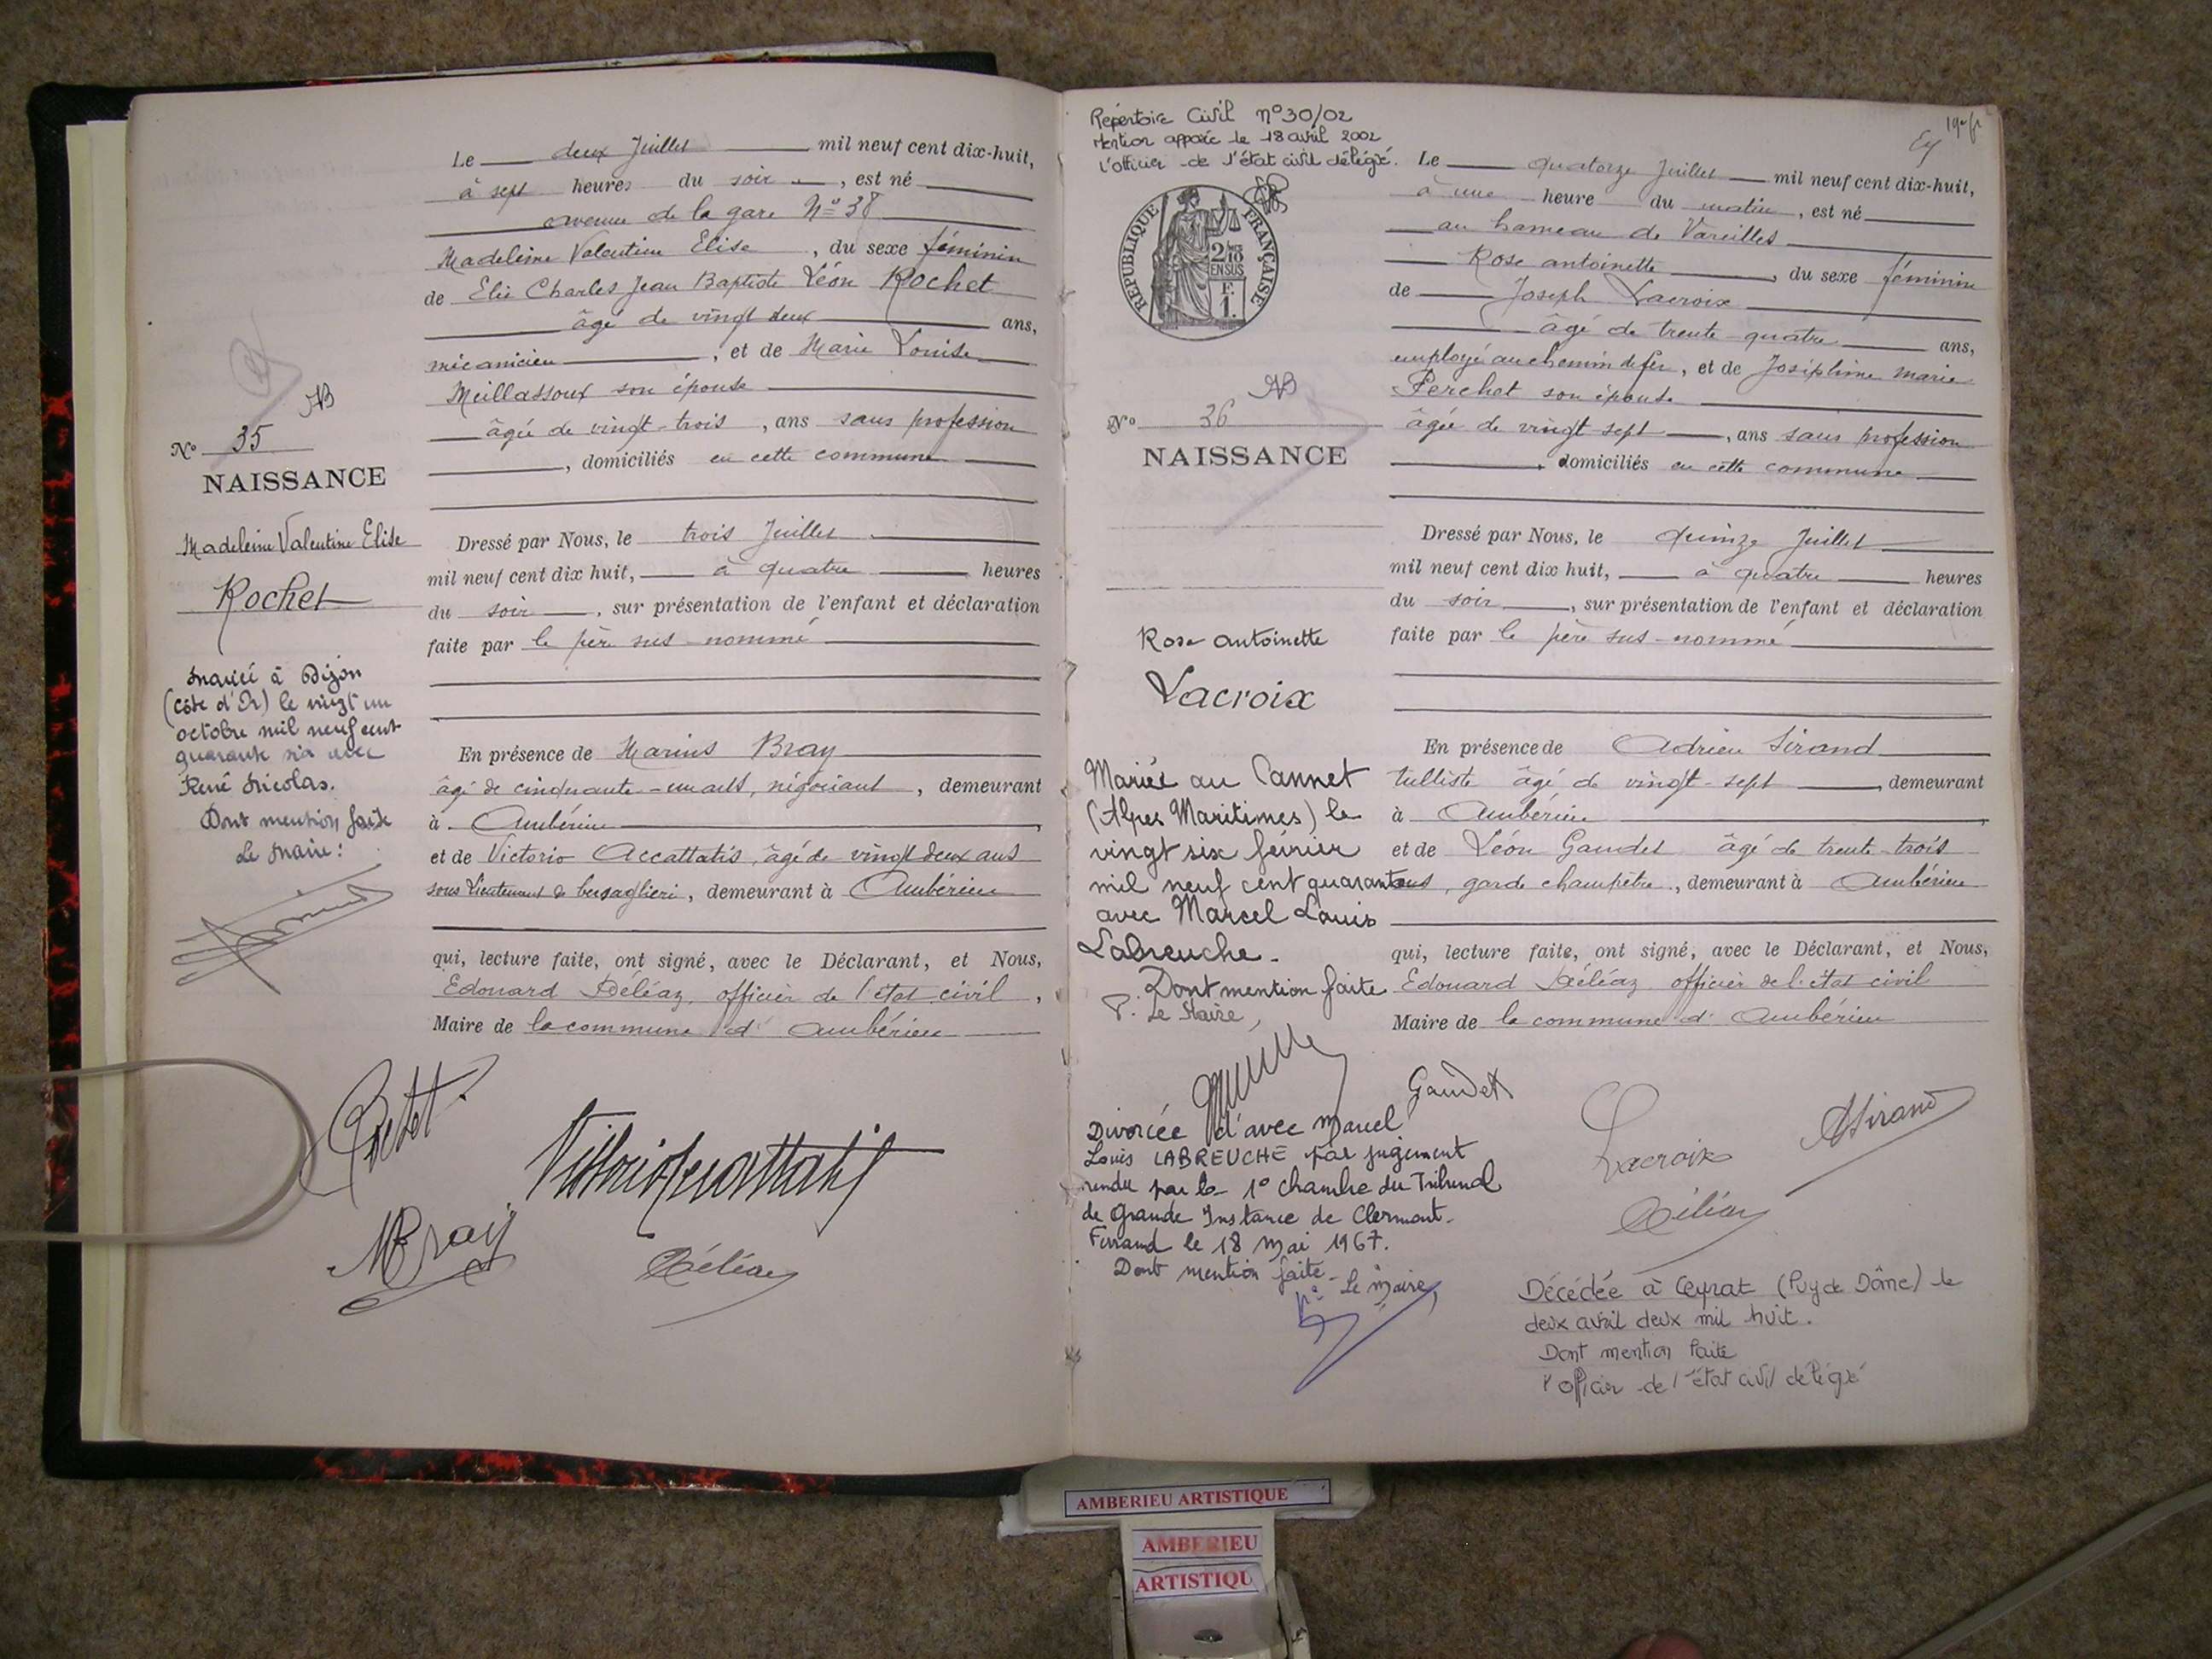 Le deux Juillet mil neuf cent dix-huit,
à sept heures du soir, est né
avenue de la gare N° 38
Madeleine Valentine Elise, du sexe féminin
de Elie Charles Jean Baptiste Léon Rochet
âgé de vingt deux ans,
mécanicien, et de Marie Louise
Meillassoux son épouse
âgée de vingt-trois, ans sans profession
, domiciliés en cette commune
AB
N° 35
NAISSANCE
Madeleine Valentine Elise
Rochet
Dressé par Nous, le trois Juillet
mil neuf cent dix huit, à quatre heures
du soir, sur présentation de l'enfant et déclaration
faite par le père sus-nommé
Mariée à Dijon
(Côte d'Or) le vingt un
octobre mil neuf cent
quarante six avec
René Nicolas.
Dont mention faite
Le Maire:
En présence de Marius Bray
âgé de cinquante-un ans, négociant, demeurant
à Ambérieu
et de Victorio Accattatis, âgé de vingt deux ans
sous Lieutenant de bersaglieri, demeurant à Ambérieu
qui, lecture faite, ont signé, avec le Déclarant, et Nous,
Edouard Déléaz, officier de l'état civil,
Maire de la commune d'Ambérieu
MBray
Déléaz
Répertoire Civil n°30/02
Mention apposée le 18 avril 2002
l'officier de l'état civil délégué.
RÉPUBLIQUE FRANÇAISE
2/10
EN SUS
F.
1.
Le quatorze Juillet mil neuf cent dix-huit,
à une heure du matin, est né
au hameau de Vareilles
Rose antoinette, du sexe féminin
de Joseph Lacroix
âgé de trente-quatre ans,
employé au chemin de fer, et de Joséphine Marie
Perchet son épouse
âgée de vingt-sept, ans sans profession
, domiciliés en cette commune
AB
N° 36
NAISSANCE
Rose antoinette
Lacroix
Dressé par Nous, le quinze Juillet
mil neuf cent dix huit, à quatre heures
du soir, sur présentation de l'enfant et déclaration
faite par le père sus-nommé
Mariée au Cannet
(Alpes Maritimes) le
vingt six février
mil neuf cent quarante
avec Marcel Louis
Labreuche.
Dont mention faite
P. Le Maire,
En présence de Adrien Sirand
tulliste âgé de vingt-sept, demeurant
à Ambérieu
et de Léon Gaudet âgé de trente-trois
ans, garde champêtre, demeurant à Ambérieu
qui, lecture faite, ont signé, avec le Déclarant, et Nous,
Edouard Déléaz officier de l'état civil
Maire de la commune d'Ambérieu
Gaudet
Lacroix
ASirand
Déléaz
Divorcée d'avec Marcel
Louis LABREUCHE par jugement
rendu par la 1° chambre du Tribunal
de Grande Instance de Clermont-
Ferrand le 18 Mai 1967.
Dont mention faite-
Le Maire,
Décédée à Ceyrat (Puy de Dôme) le
deux avril deux mil huit.
Dont mention faite
l'officier de l'état civil délégué
AMBERIEU ARTISTIQUE
AMBERIEU
ARTISTIQU